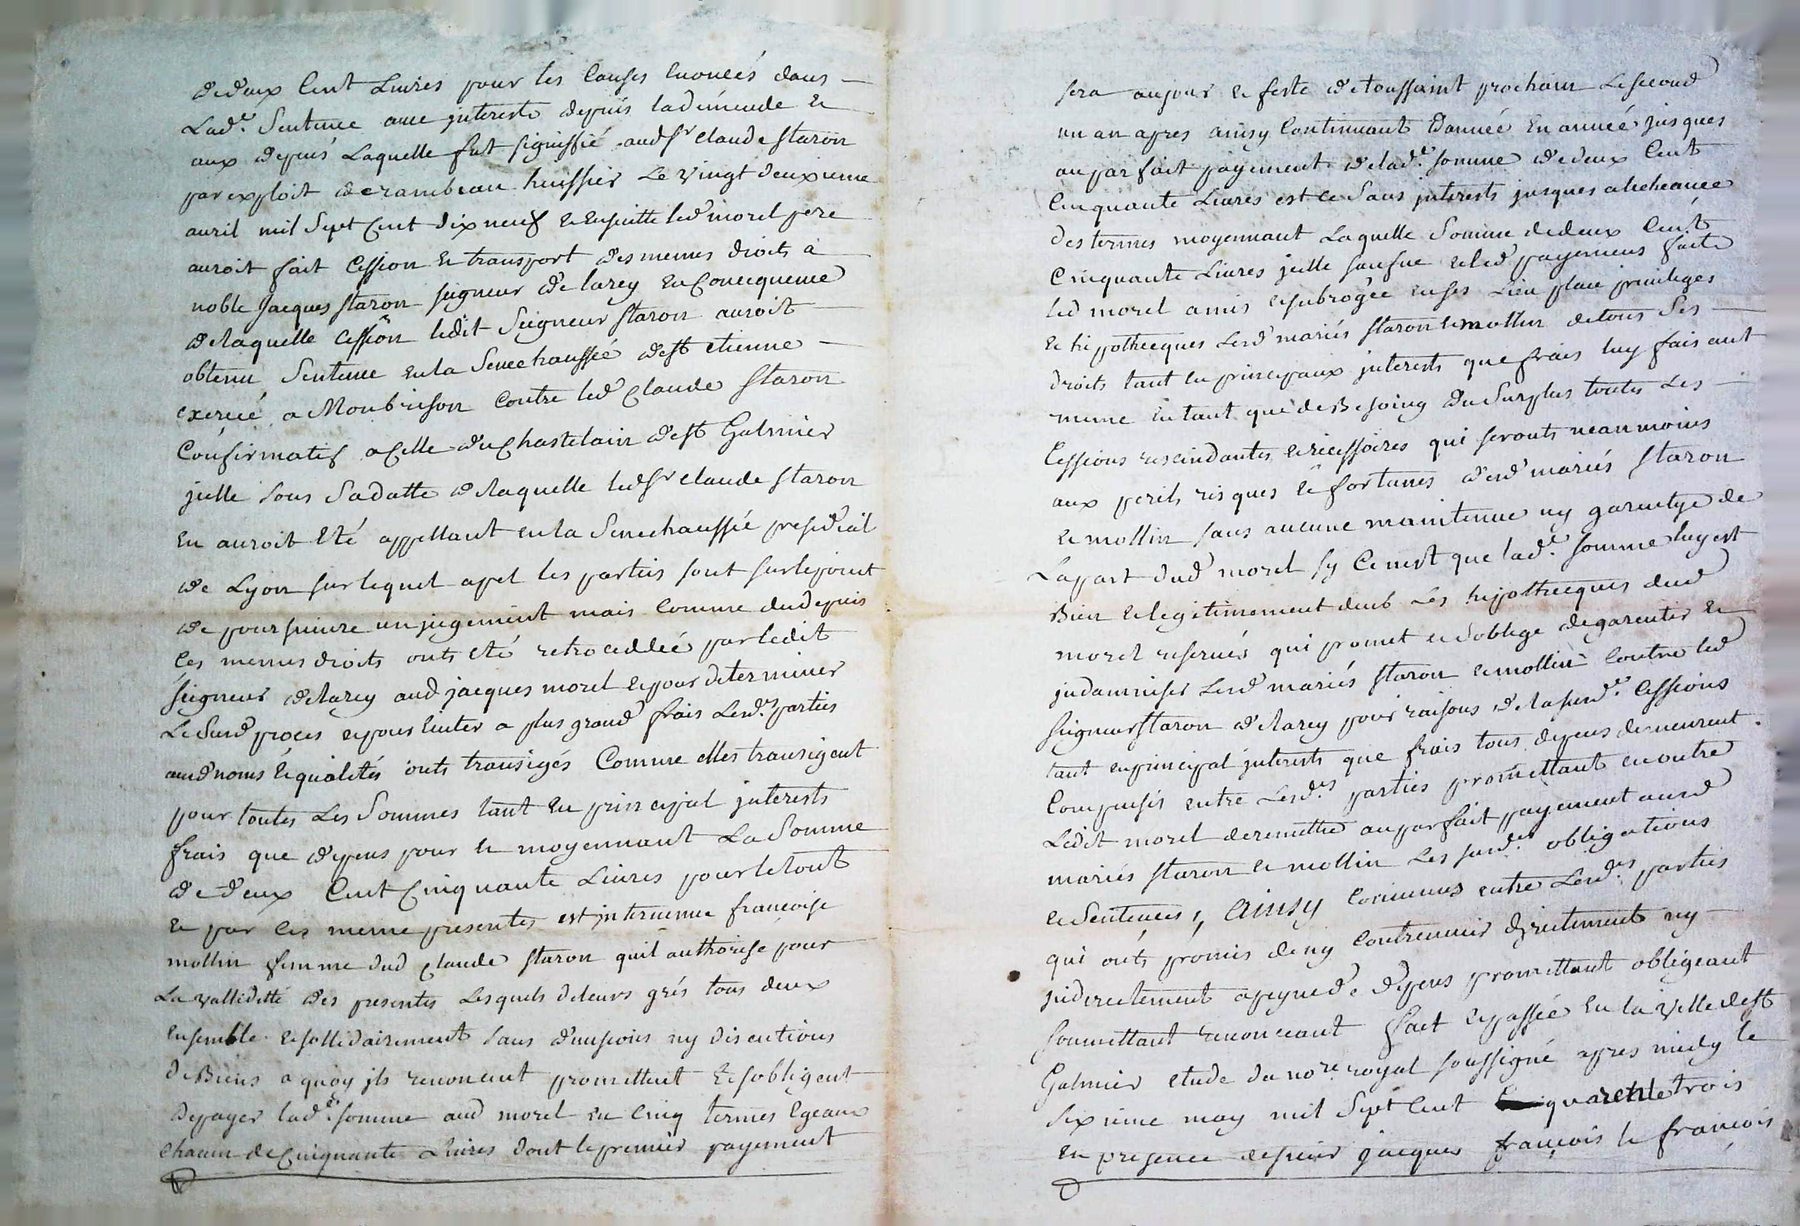 de deux Cent Livres pour les Causes Enoncés dans
Lad.e Sentence avec jnterests depuis lademande &
aux depuis Laquelle fut signiffié aud Sr claude Staron
par exploit de rambeau huissier Le vingt deuxieme
auril mil Sept Cent dix neuf & ensuitte led morel pere
auroit fait Cession & transport des memes droits a
noble Jacques Staron seigneur de larey en Consequence
de laquelle Cession ledit Seigneur Staron auroit
obtenu Sentence en la Senechaussée de st etienne
exercée a Montbrison Contre led Claude Staron
Confirmatif a Celle du Chastelain de st Galmier
jcelle sous Sa datte de laquelle led Sr claude Staron
En auroit Eté appellant en la Senechaussée presidial
de Lyon sur lequel apel les parties sont sur le point
de poursuivre un jugement mais Comme du depuis
les memes droits onts eté retroceddée par ledit
seigneur de larey aud jacques morel & pour determiner
Le Surd proces & pour Eviter a plus grand frais Lesd.es parties
aud noms & qualités onts transigés Comme elles transigent
pour toutes Les Sommes tant En principal jnterests
frais que depens pour & moyennant La Somme
de deux Cent Cinquante Livres pour le tout
& par ces meme presentes est jntervenue francoise
mollin femme dud Claude Staron quil authorise pour
La vallidetté des presentes Lesquels de leurs grés tous deux
Ensemble & sollidairement sans division ny discutions
de Biens a quoy jls renoncent promettent & sobligent
de payer lad.e somme aud morel en Cinq termes Egeaux
Chacun de Cinquante Livres dont le premier payement
sera au jour & feste de toussaint prochain Le second
un an apres ainsy Continuant d'année En année jusques
au parfait payement de lad.e somme de deux Cent
Cinquante Livres est ce Sans jnterests jusques a lecheance
des termes moyennant Laquelle Somme de deux Cent
Cinquante Livres jcelle payemens faite
led morel a mis & subrogée en ses Lieu place privileges
& hipothecques Lesd mariés Staron & mollin de tous Ses
droits tant en principaux jnterests que frais luy faisant
meme En tant que de Besoing du Surplus toutes Les
Cessions rescindantes & recissoires qui seronts neanmoins
aux perils risques & fortunes desd mariés Staron
& mollin sans aucune maintenue ny garentye de
La part dud morel sy Ce nest que lad.e somme luy est
Bien & legitimement deub Les hipothecques dud
morel reservés qui promet & soblige de garentir &
jndamniser Lesd mariés Staron & mollin Contre led
Seigneur Staron de larey pour raisons de la susd.e Cessions
tant en principal jnterests que frais tous depens demeurent
Compensés entre Lesd.es parties promettant en outre
Ledit morel de remettre au parfait payement ausd
mariés Staron & mollin Les susd.es obligations
& Sentences, ainsy Convenus entre Lesd.es parties
qui onts promis de ny Contrevenir directement ny
jndirectement a peyne de depens promettant obligeant
soumettant renonceant fait & passée En la ville de st
Galmier etude du no.re royal soussigné apres midy le
sixieme may mil Sept Cent quarente trois
En presence de sieur jacques francois le francois